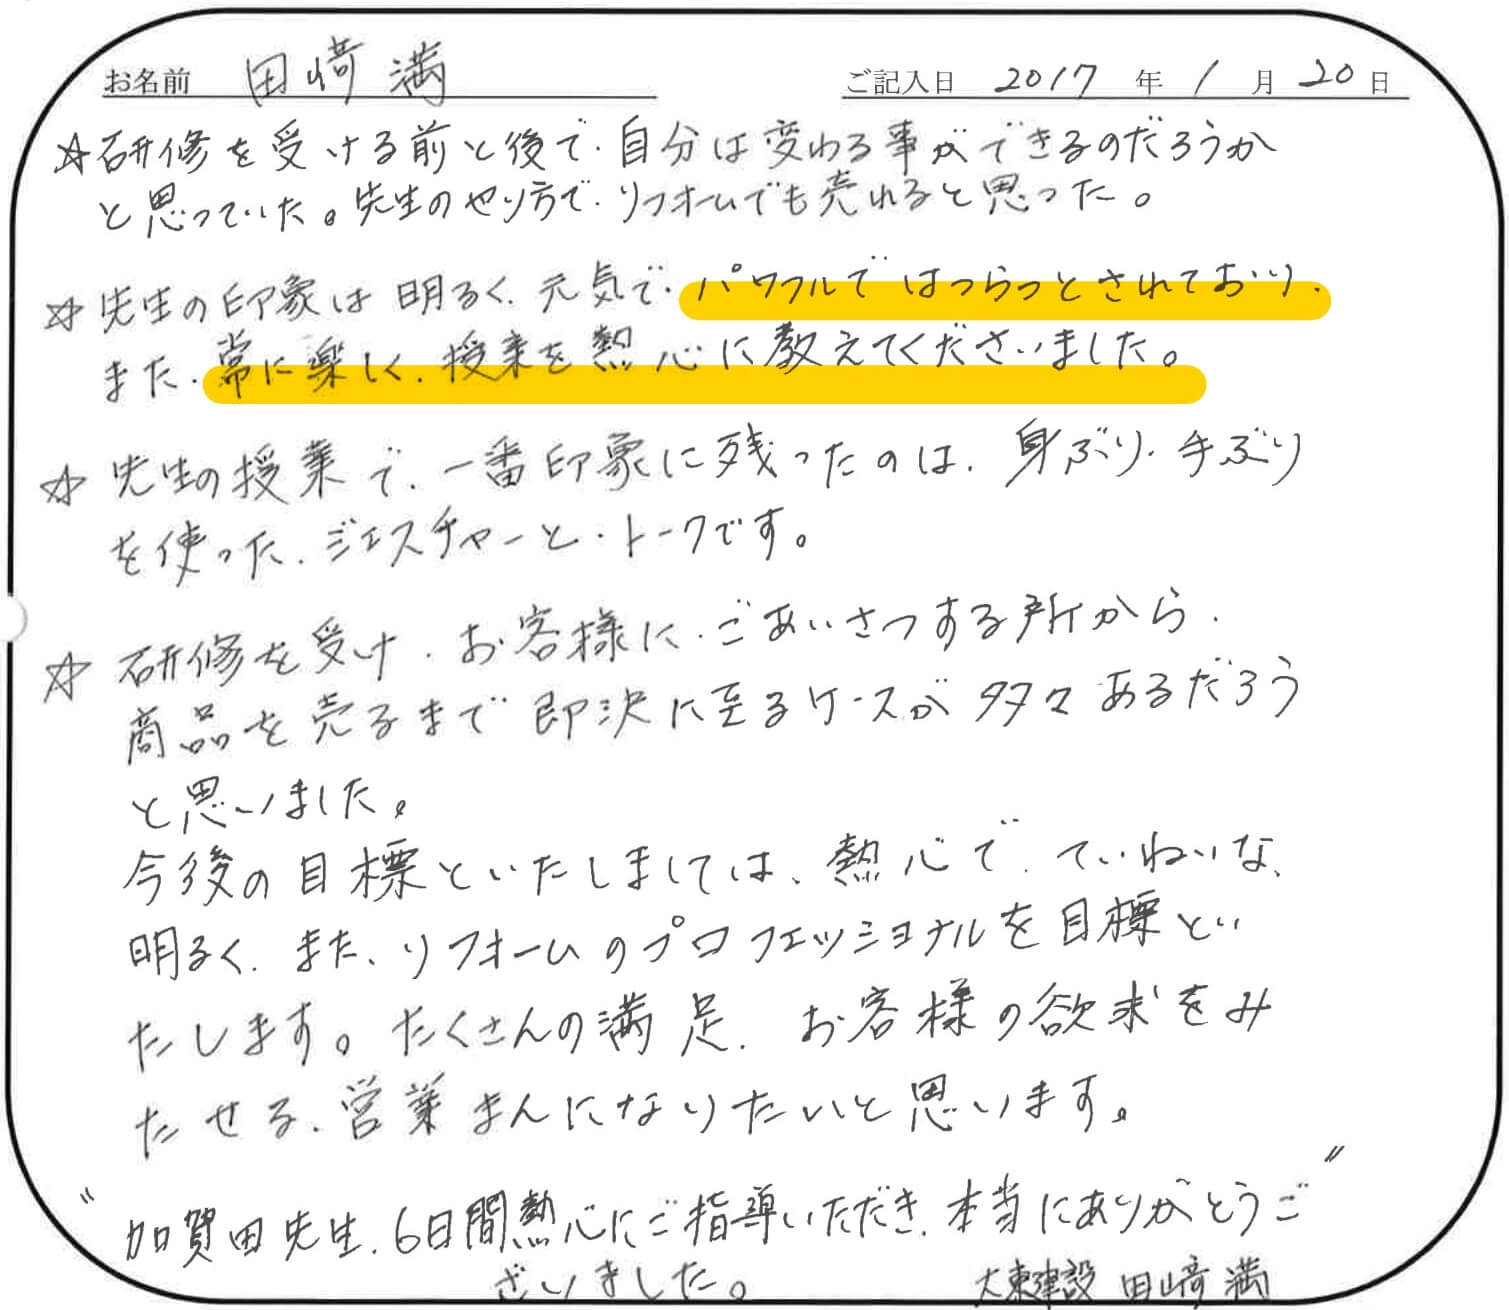 お名前 田﨑 満 ご記入日 2017 年 1 月 20 日
☆研修を受ける前と後で、自分は変わる事ができるのだろうか
と思っていた。先生のやり方で、リフォームでも売れると思った。
☆先生の印象は明るく、元気で、パワフルではつらっとされており、
また、常に楽しく、授業を熱心に教えてくださいました。
☆先生の授業で、一番印象に残ったのは、身ぶり、手ぶり
を使った、ジェスチャーと、トークです。
☆研修を受け、お客様に、ごあいさつする所から、
商品を売るまで即決に至るケースが多々あるだろう
と思いました。
今後の目標といたしましては、熱心で、ていねいな、
明るく、また、リフォームのプロフェッショナルを目標とい
たします。たくさんの満足、お客様の欲求をみ
たせる、営業まんになりたいと思います。
"加賀田先生、6日間熱心にご指導いただき、本当にありがとうご"
ざいました。 大東建設 田﨑 満